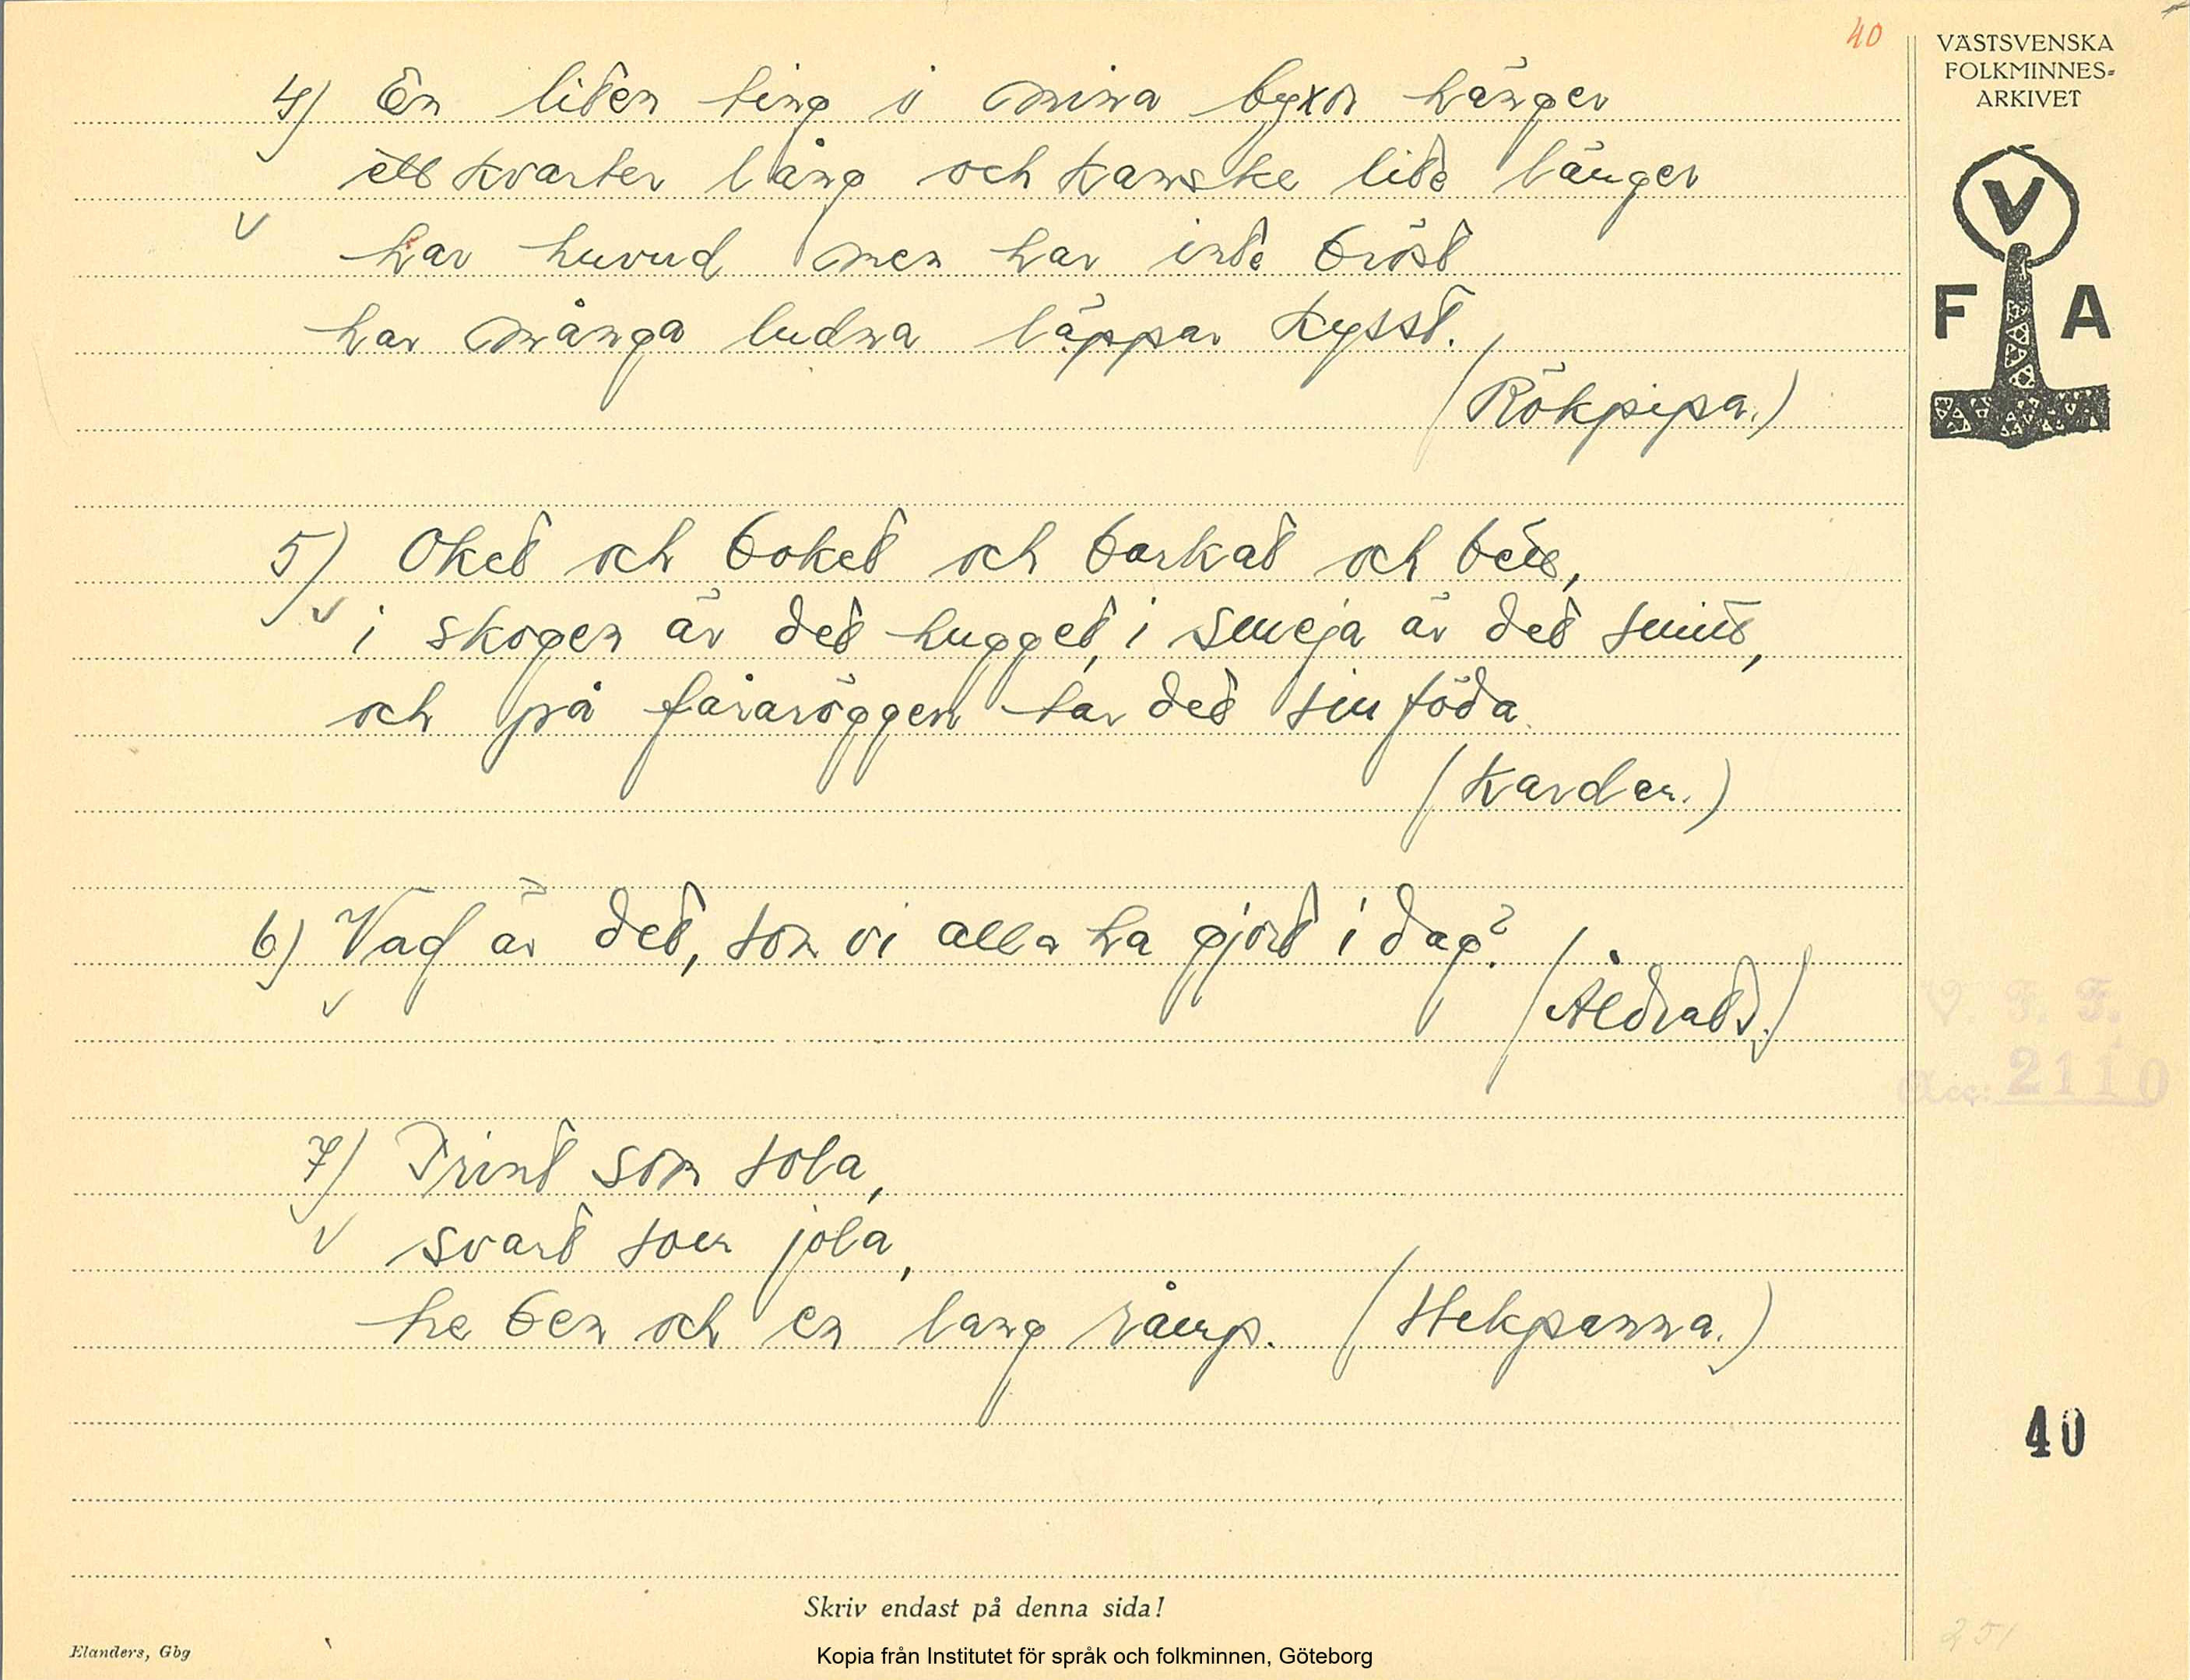 40
VÄSTSVENSKA
FOLKMINNES-
ARKIVET
V
F A
4) En liten ting i mina byxor hänger
ett kvarter lång och kanske lite länger
har huvud men har inte bröst
har många ludna läppar kysst.
(Rökpipa.)
5) Oket och boket och barkat och bett,
i skogen är det hugget, i smeja är det smitt,
och på fåraröggen tar det sin föda
(Kardor.)
6) Vad är det, som vi alla ha gjort i dag?
(Åldrats.)
V. F. F.
Acc: 2110
7) Trint som sola,
svart som jola,
tre ben och en lang rämp. (Stekpanna.)
40
Skriv endast på denna sida!
Elanders, Gbg
Kopia från Institutet för språk och folkminnen, Göteborg
251